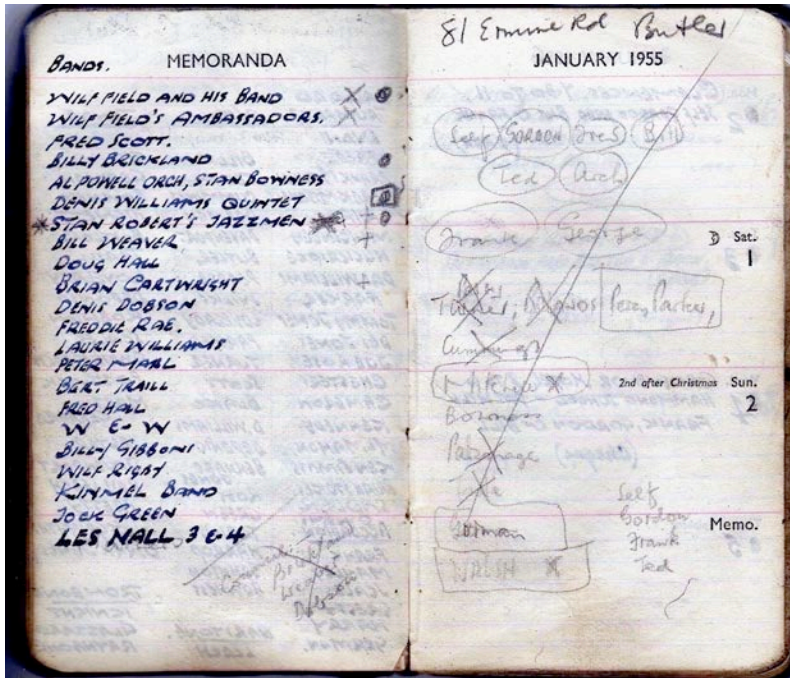 BANDS. MEMORANDA
WILF FIELD AND HIS BAND
WILF FIELD'S AMBASSADORS.
FRED SCOTT.
BILLY BRICKLAND
AL POWELL ORCH, STAN BOWNESS
DENIS WILLIAMS QUINTET
*STAN ROBERT'S JAZZMEN
BILL WEAVER
DOUG HALL
BRIAN CARTWRIGHT
DENIS DOBSON
FREDDIE RAE.
LAURIE WILLIAMS
PETER MARL
BERT TRAILL
FRED HALL
W E W
BILLY GIBBONS
WILF RIGBY
KINMEL BAND
JOCK GREEN
LES NALL 3 & 4
81 Ermine Rd Butler
JANUARY 1955
Self GORDON Fred Bill
Ted Arch
Frank George
D Sat.
1
Percy Parker,
2nd after Christmas Sun.
2
Bowness
Gorman
WALSH X
Self
Gordon
Frank
Ted
Memo.